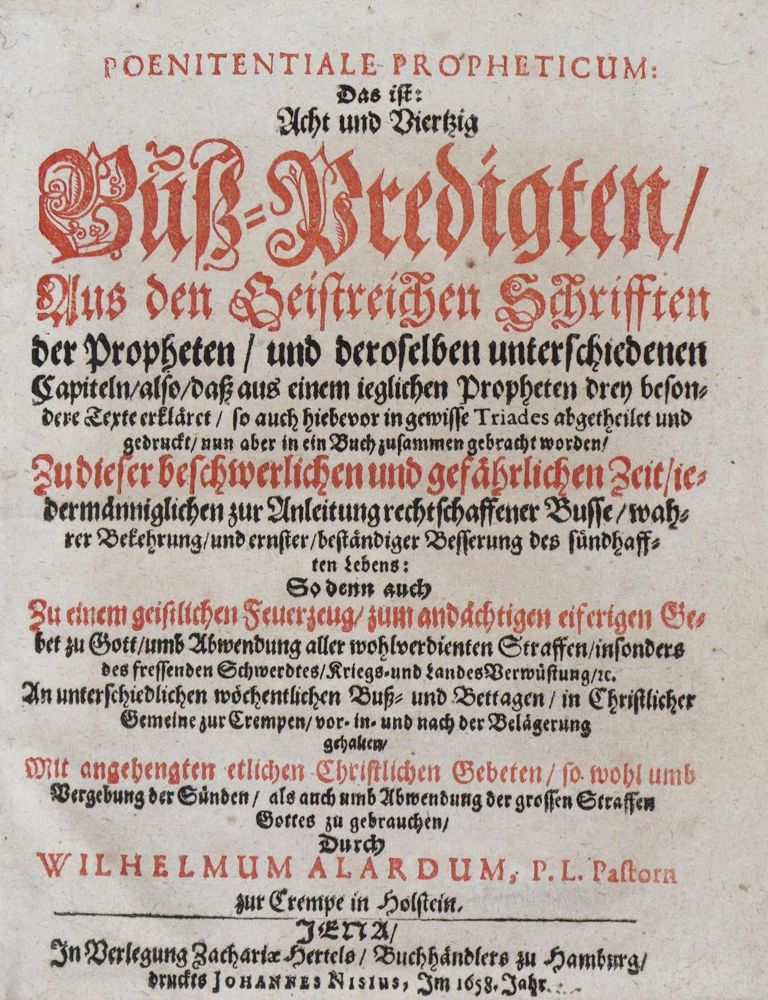 POENITENTIALE PROPHETICUM:
Das ist:
Acht und Viertzig
Buß-Predigten/
Aus den Geistreichen Schrifften
der Propheten / und deroselben unterschiedenen
Capiteln/also/daß aus einem ieglichen Propheten drey beson-
dere Texte erkläret / so auch hiebevor in gewisse Triades abgetheilet und
gedruckt/ nun aber in ein Buch zusammen gebracht worden/
Zu dieser beschwerlichen und gefährlichen Zeit/ie-
dermänniglichen zur Anleitung rechtschaffener Busse/wah-
rer Bekehrung/und ernster/beständiger Besserung des sündhaff-
ten Lebens:
So denn auch
Zu einem geistlichen Feuerzeug/ zum andächtigen eiferigen Ge-
bet zu Gott/umb Abwendung aller wohlverdienten Straffen/insonders
des fressenden Schwerdtes/Kriegs-und LandesVerwüstung/ꝛc.
An unterschiedlichen wöchentlichen Buß- und Bettagen/ in Christlicher
Gemeine zur Crempen/vor- in- und nach der Belägerung
gehalten/
Mit angehengten etlichen Christlichen Gebeten/ so wohl umb
Vergebung der Sünden/ als auch umb Abwendung der grossen Straffen
Gottes zu gebrauchen/
Durch
WILHELMUM ALARDUM, P. L. Pastorn
zur Crempe in Holstein.
JENA/
In Verlegung Zachariæ Hertels/ Buchhändlers zu Hamburg/
druckts JOHANNES NISIUS, Im 1658. Jahr.